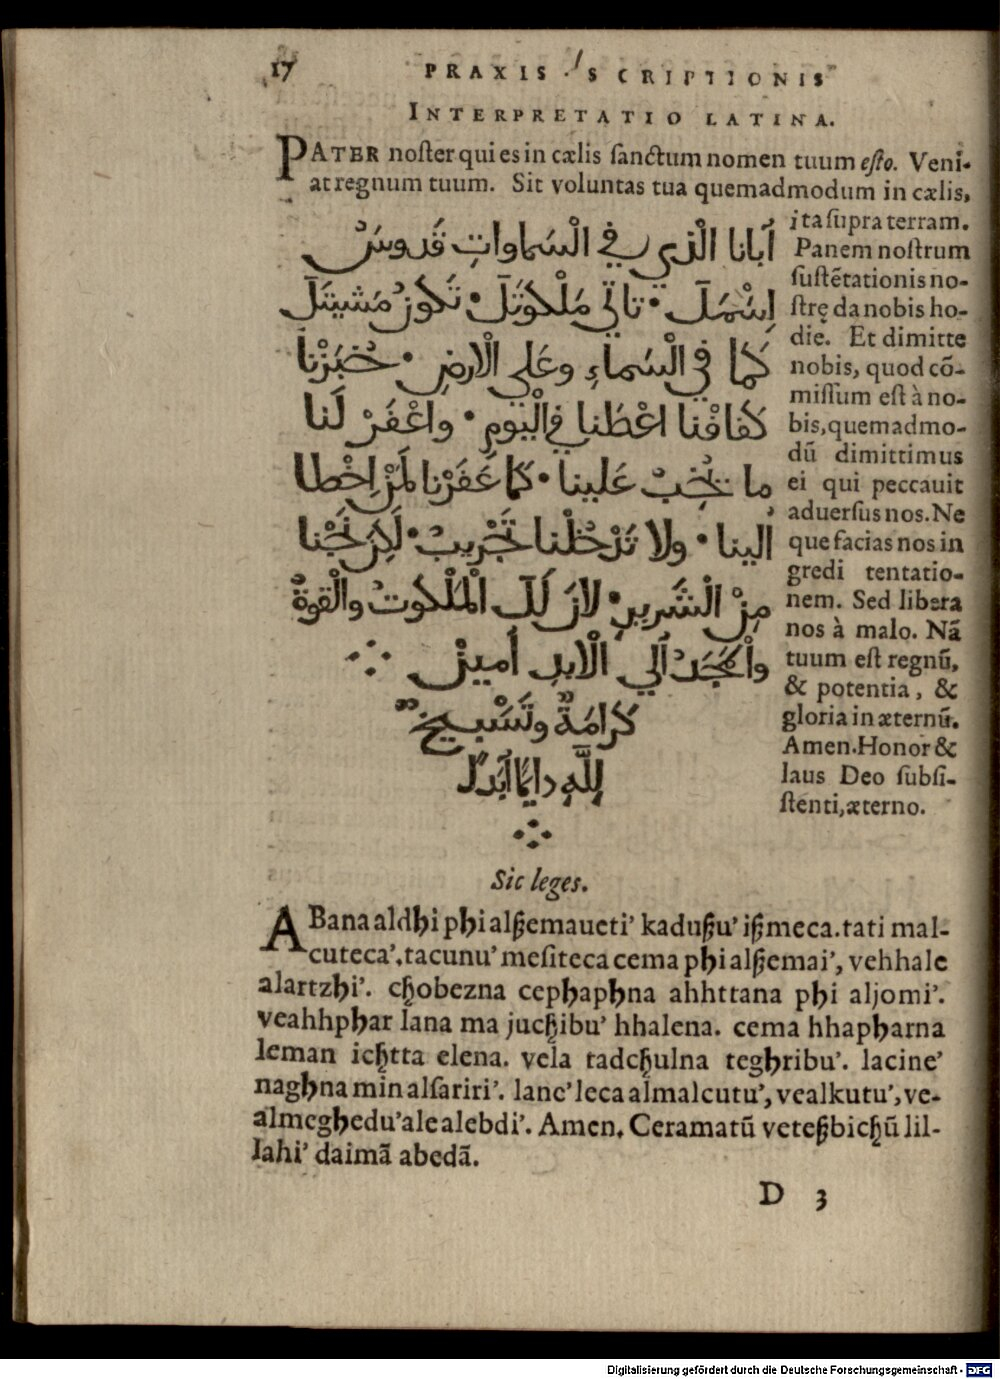 17
PRAXIS SCRIPTIONIS
INTERPRETATIO LATINA.
PATER noſter qui es in cælis ſanctum nomen tuum eſto. Veni-
at regnum tuum. Sit voluntas tua quemadmodum in cælis,
ita ſupra terram.
Panem noſtrum
ſuſtẽtationis no-
ſtrę da nobis ho-
die. Et dimitte
nobis, quod cõ-
miſſum eſt à no-
bis, quemadmo-
dũ dimittimus
ei qui peccauit
aduerſus nos. Ne
que facias nos in
gredi tentatio-
nem. Sed libera
nos à malo. Nã
tuum eſt regnũ,
& potentia, &
gloria in æternũ.
Amen. Honor &
laus Deo ſubſi-
ſtenti, æterno.
أبانا الْذي في الْسَماواتِ قَدوسُ
اِسْمَك • تاتي مَلْكوتَك • تَكونُ مَشيتَك
كَما في الْسَماءِ وعَلي الْارضِ • خُبَزْنا
كَفافْنا اعْطَنا في الْيومِ • واغْفَرْ لَنا
ما يَجِبُ عَلينا • كَما غَفَرْنا لَمَنْ اِخْطا
الينا • ولا تَدْخُلْنا تَجْريبُ • لَكِنَ نَجْنا
مِنْ الْشَريرِ • لانَ لَكَ الْمَلْكوتُ والْقوةُ
والْمَجَدُ اَلي الْابدِ أمينْ
كَرامَةٌ وتَسْبيحٌ
لِلَّهِ دايماً أبَداً
Sic leges.
ABana aldħi pħi alβemaueti’ kaduβu’ iβmeca. tati mal-
cuteca’. tacunu’ meſiteca cema pħi alβemai’, vehhale
alartzħi’. cħobezna cepħapħna ahhttana pħi aljomi’.
veahhpħar lana ma jucħibu’ hhalena. cema hhapħarna
leman icħtta elena. vela tadcħulna tegħribu’. lacine’
nagħna min alſariri’. lane’ leca almalcutu’, vealkutu’, ve-
almegħedu’ ale alebdi’. Amen. Ceramatũ veteβbicħũ lil-
lahi’ daimã abedã.
D 3
Digitalisierung gefördert durch die Deutsche Forschungsgemeinschaft - DFG